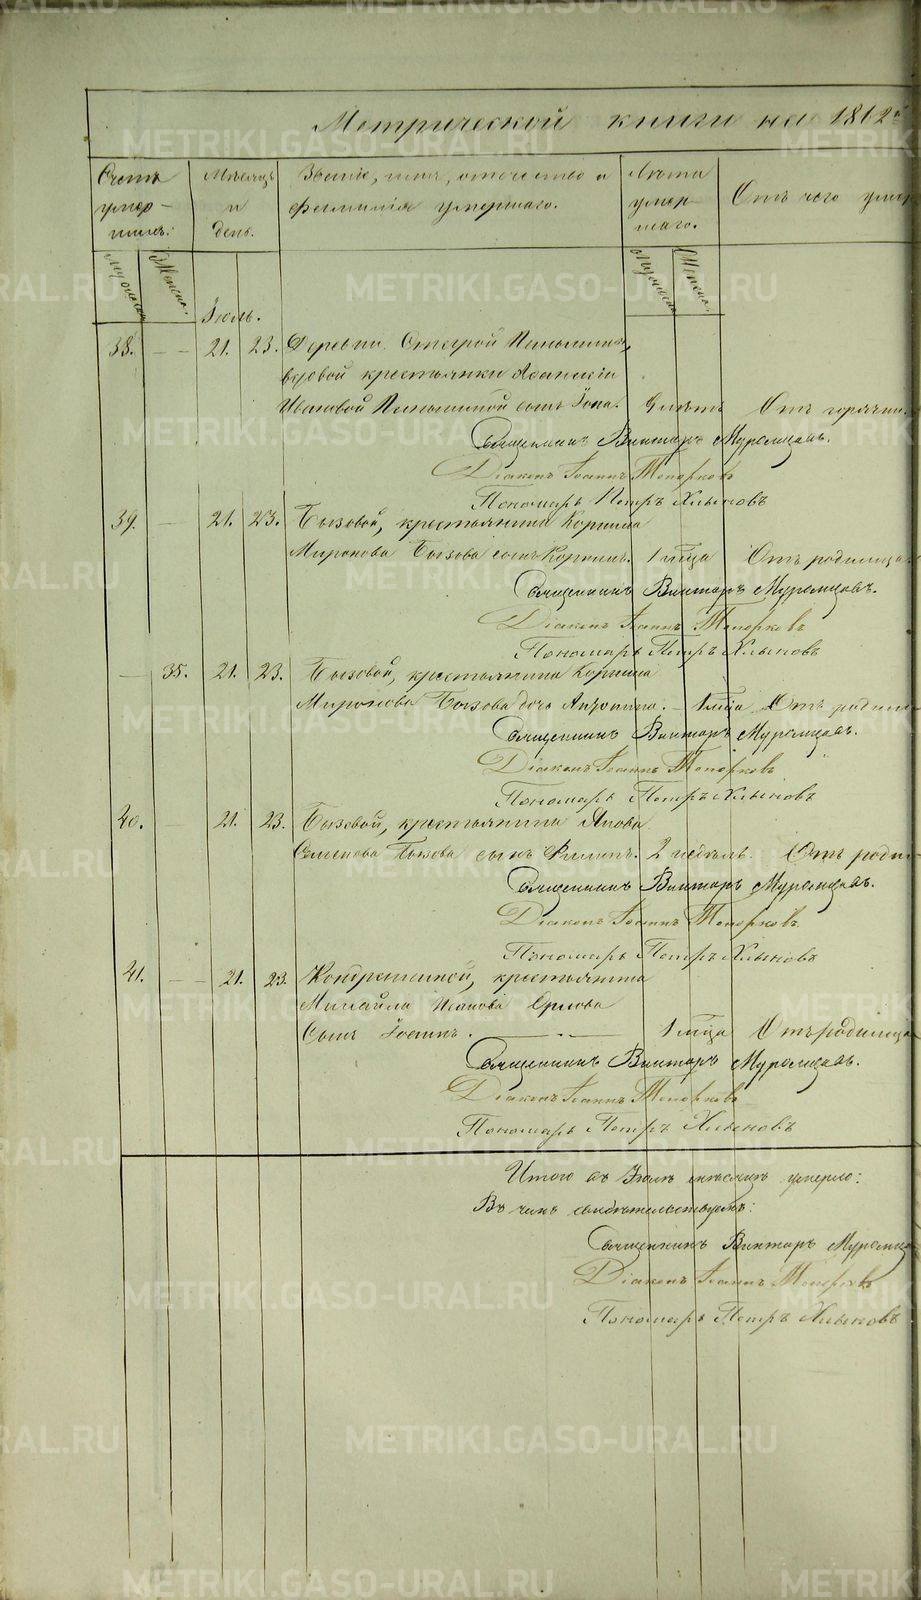 Метрической книги на 1862й
Счетъ умер-шихъ:
Мѣсяцъ и день.
Званіе, имя, отечество и фамилія умершаго.
Лѣта умер-шаго.
Отъ чего умер
Мужеска Женска.
Мужеска Женска.
Іюль.
38. — 21. 23. Деревни Старой
вдовой крестьянки
Ивановой сынъ Іона. 9 лѣтъ Отъ горячки.
Священникъ Викторъ Муромцовъ.
Діаконъ Іоаннъ Топорковъ
Пономарь Петръ Хлыновъ
39. — 21. 23. Бызовой, крестьянина Корнила
Миронова Бызова сынъ Корнилъ. 1 мѣца Отъ родимца.
Священникъ Викторъ Муромцовъ.
Діаконъ Іоаннъ Топорковъ
Пономарь Петръ Хлыновъ
— 35. 21. 23. Бызовой, крестьянина Корнила
Миронова Бызова дочь Антонина. — 1 мѣца Отъ родим
Священникъ Викторъ Муромцовъ.
Діаконъ Іоаннъ Топорковъ
Пономарь Петръ Хлыновъ
40. — 21. 23. Бызовой, крестьянина Якова
Семенова Бызова сынъ Филипъ. 2 недѣль. Отъ роди
Священникъ Викторъ Муромцовъ.
Діаконъ Іоаннъ Топорковъ.
Пономарь Петръ Хлыновъ
41. — 21. 23. крестьянина
Михайла Иванова Орлова
сынъ Іоаннъ. 1 мѣца Отъ родимца
Священникъ Викторъ Муромцовъ.
Діаконъ Іоаннъ Топорковъ
Пономарь Петръ Хлыновъ
Итого въ Іюлѣ мѣсяцѣ умерло:
Въ чемъ свидѣтельствуемъ:
Священникъ Викторъ Муромцо
Діаконъ Іоаннъ Топорковъ
Пономарь Петръ Хлыновъ
METRIKI.GASO-URAL.RU